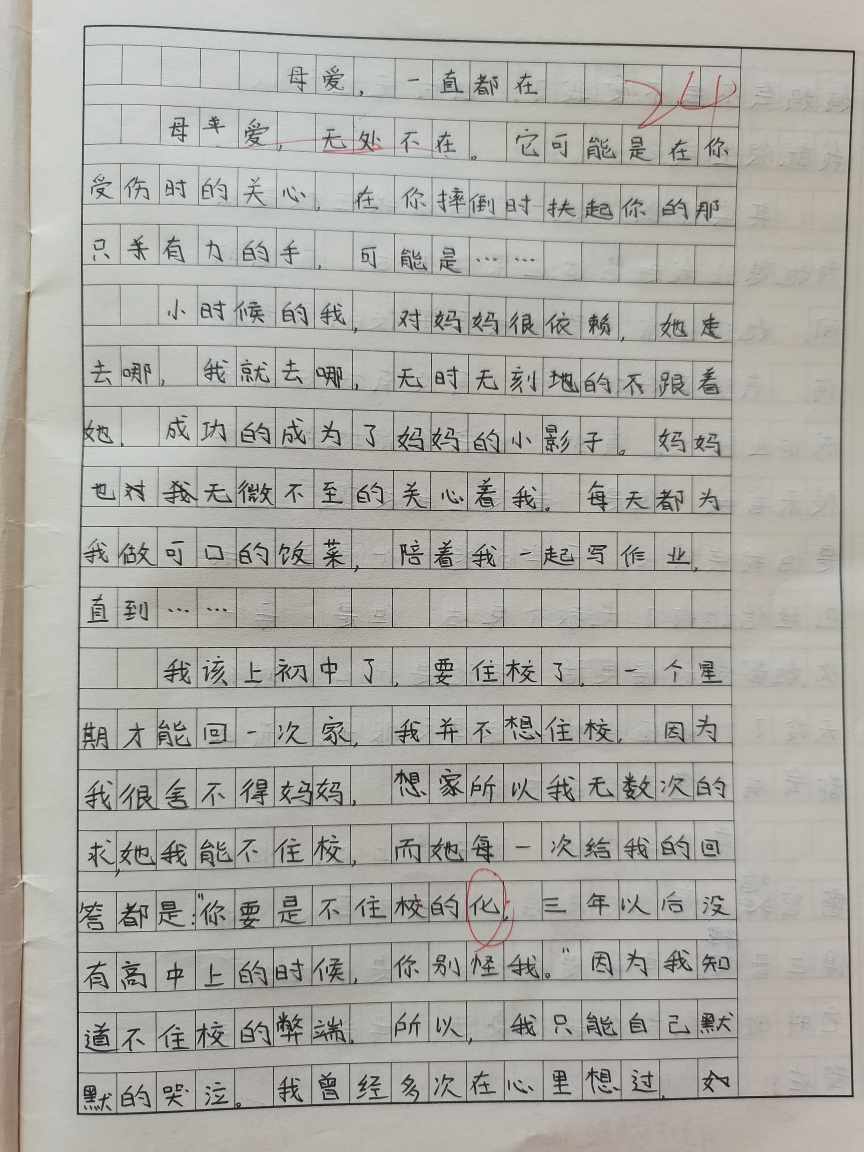 母爱，一直都在 24
母爱，无处不在。它可能是在你
受伤时的关心，在你摔倒时扶起你的那
只有力的手，可能是……
小时候的我，对妈妈很依赖，她走
去哪，我就去哪，无时无刻地的不跟着
她．成功的成为了妈妈的小影子。妈妈
也对我无微不至的关心着我。每天都为
我做可口的饭菜，陪着我一起写作业，
直到……
我该上初中了，要住校了，一个星
期才能回一次家，我并不想住校，因为
我很舍不得妈妈，想家所以我无数次的
求，她我能不住校，而她每一次给我的回
答都是：“你要是不住校的化，三年以后没
有高中上的时候，你别怪我。”因为我知
道不住校的弊端．所以，我只能自己默
默的哭泣。我曾经多次在心里想过，如